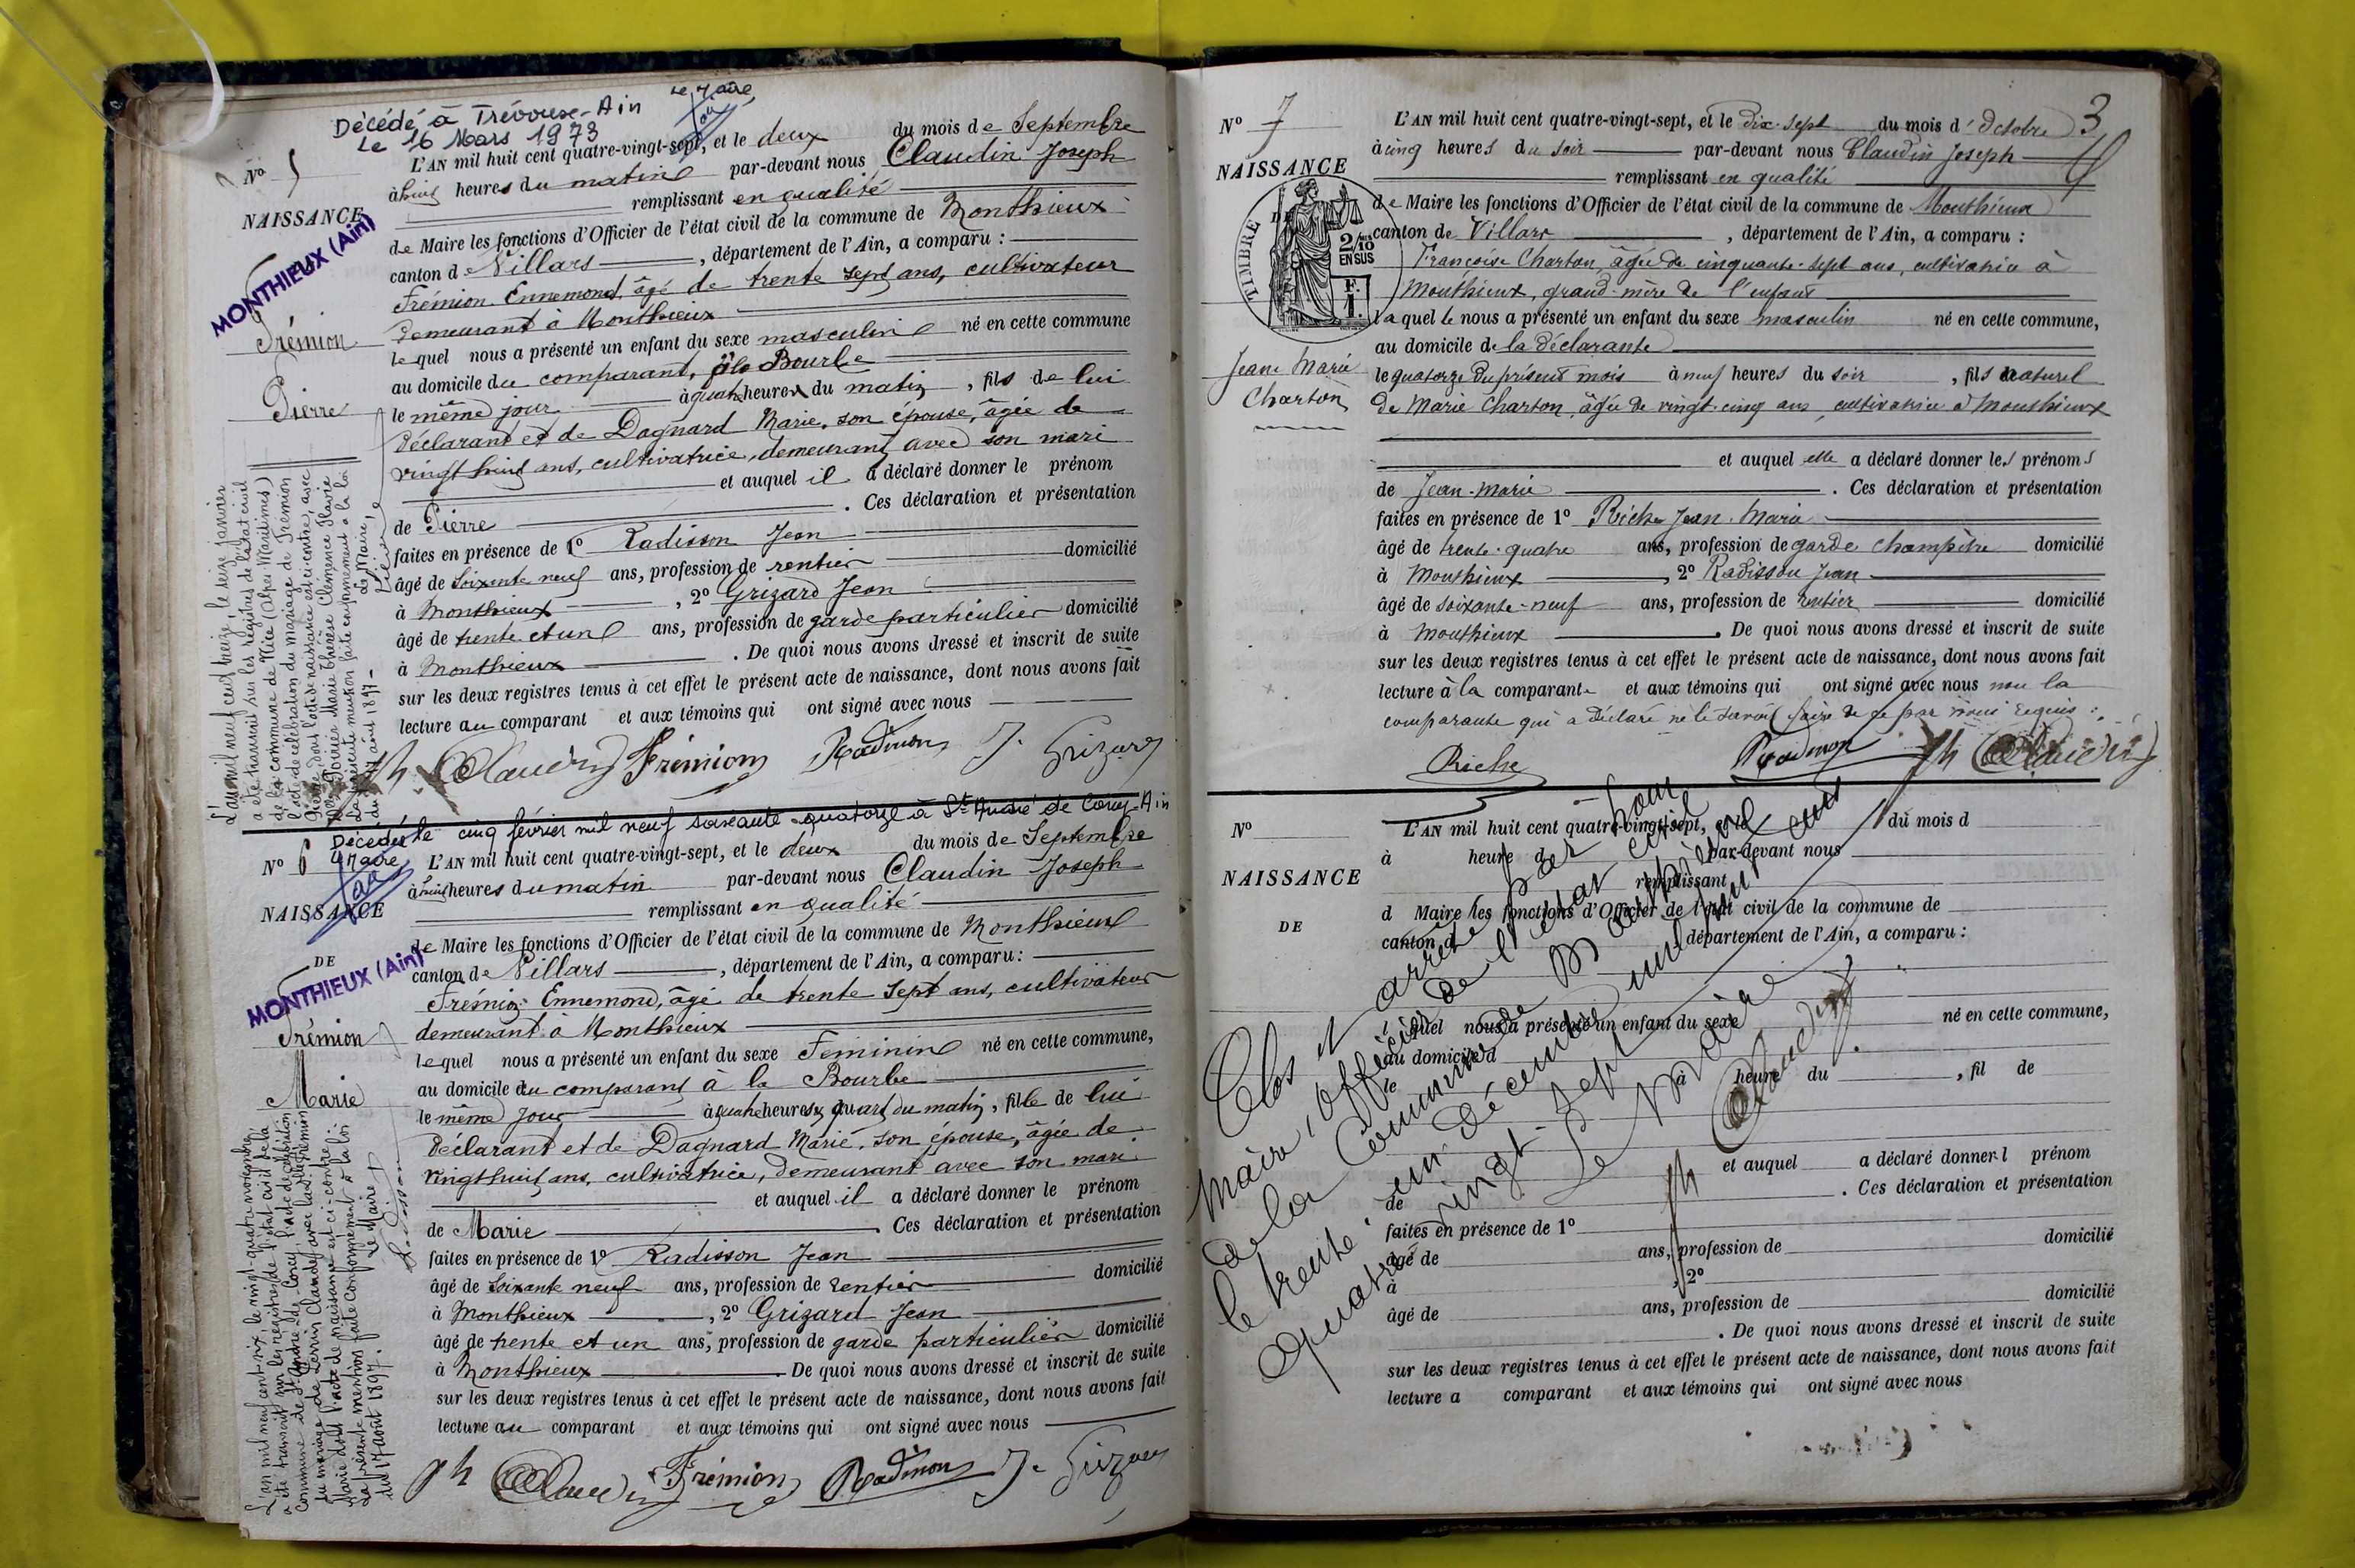 Décédé à Trévoux-Ain
Le 16 Mars 1973
Le Maire
N° 5
NAISSANCE
DE
MONTHIEUX (Ain)
Frémion
Pierre
L'AN mil huit cent quatre-vingt-sept, et le deux du mois de Septembre
à huit heures du matin par-devant nous Claudin Joseph
remplissant en qualité
de Maire les fonctions d'Officier de l'état civil de la commune de Monthieux
canton de Villars, département de l'Ain, a comparu :
Frémion Ennemond, âgé de trente sept ans, cultivateur
demeurant à Monthieux
lequel nous a présenté un enfant du sexe masculin né en cette commune
au domicile du comparant, à la Bourbe
le même jour à quatre heures du matin, fils de lui
déclarant et de Dagnard Marie, son épouse, âgée de
vingt huit ans, cultivatrice, demeurant avec son mari
et auquel il a déclaré donner le prénom
de Pierre. Ces déclaration et présentation
faites en présence de 1° Radisson Jean
âgé de soixante neuf ans, profession de rentier domicilié
à Monthieux, 2° Grizard Jean
âgé de trente et un ans, profession de garde particulier domicilié
à Monthieux. De quoi nous avons dressé et inscrit de suite
sur les deux registres tenus à cet effet le présent acte de naissance, dont nous avons fait
lecture au comparant et aux témoins qui ont signé avec nous
Jh Claudin Frémion Radisson J. Grizard
L'an mil neuf cent treize, le seize janvier
a été transcrit sur les registres de l'état civil
de la commune de Nice (Alpes Maritimes)
l'acte de célébration du mariage de Frémion
Pierre dont l'acte de naissance est ci-contre, avec
Marie Thérèse Clémence Flavie
La présente mention faite conformément à la loi
du 17 août 1897 -
Le Maire,
Décédée le cinq février mil neuf soixante quatorze à St André de Corcy-Ain
Le Maire
N° 6
NAISSANCE
DE
MONTHIEUX (Ain)
Frémion
Marie
L'AN mil huit cent quatre-vingt-sept, et le deux du mois de Septembre
à huit heures du matin par-devant nous Claudin Joseph
remplissant en qualité
de Maire les fonctions d'Officier de l'état civil de la commune de Monthieux
canton de Villars, département de l'Ain, a comparu :
Frémion Ennemond, âgé de trente sept ans, cultivateur
demeurant à Monthieux
lequel nous a présenté un enfant du sexe Feminin né en cette commune,
au domicile du comparant à la Bourbe
le même jour à quatre heures quart du matin, fille de lui
déclarant et de Dagnard Marie, son épouse, âgée de
vingt huit ans, cultivatrice, demeurant avec son mari
et auquel il a déclaré donner le prénom
de Marie. Ces déclaration et présentation
faites en présence de 1° Radisson Jean
âgé de soixante neuf ans, profession de rentier domicilié
à Monthieux, 2° Grizard Jean
âgé de trente et un ans, profession de garde particulier domicilié
à Monthieux. De quoi nous avons dressé et inscrit de suite
sur les deux registres tenus à cet effet le présent acte de naissance, dont nous avons fait
lecture au comparant et aux témoins qui ont signé avec nous
Jh Claudin Frémion Radisson J. Grizard
L'an mil neuf cent six, le vingt-quatre novembre,
a été transcrit sur les registres de l'état civil de la
commune de St André-de-Corcy, l'acte de célébration
du mariage de Claude avec Frémion
Marie dont l'acte de naissance est ci-contre.
La présente mention faite conformément à la loi
du 17 août 1897.
Le Maire
3
N° 7
NAISSANCE
DE
TIMBRE
2/10
EN SUS
F.
1.
Jean Marie
Charton
L'AN mil huit cent quatre-vingt-sept, et le dix-sept du mois d'Octobre
à cinq heures du soir par-devant nous Claudin Joseph
remplissant en qualité
de Maire les fonctions d'Officier de l'état civil de la commune de Monthieux
canton de Villars, département de l'Ain, a comparu :
Françoise Charton, âgée de cinquante-sept ans, cultivatrice à
Monthieux, grand-mère de l'enfant
laquelle nous a présenté un enfant du sexe masculin né en cette commune,
au domicile de la déclarante
le quatorze du présent mois à neuf heures du soir, fils naturel
de Marie Charton, âgée de vingt-cinq ans, cultivatrice à Monthieux
et auquel elle a déclaré donner les prénoms
de Jean-Marie. Ces déclaration et présentation
faites en présence de 1° Riche Jean-Marie
âgé de trente-quatre ans, profession de garde champêtre domicilié
à Monthieux, 2° Radisson Jean
âgé de soixante-neuf ans, profession de rentier domicilié
à Monthieux. De quoi nous avons dressé et inscrit de suite
sur les deux registres tenus à cet effet le présent acte de naissance, dont nous avons fait
lecture à la comparante et aux témoins qui ont signé avec nous non la
comparante qui a déclaré ne le savoir faire de ce par nous requis.
Riche Radisson Jh Claudin
N°
NAISSANCE
DE
L'AN mil huit cent quatre-vingt-sept, et le du mois d
à heure d par-devant nous
remplissant
d Maire les fonctions d'Officier de l'état civil de la commune de
canton d département de l'Ain, a comparu :
lequel nous a présenté un enfant du sexe né en cette commune,
au domicile d
le à heure du , fil de
et auquel a déclaré donner l prénom
de . Ces déclaration et présentation
faites en présence de 1°
âgé de ans, profession de domicilié
à , 2°
âgé de ans, profession de domicilié
à . De quoi nous avons dressé et inscrit de suite
sur les deux registres tenus à cet effet le présent acte de naissance, dont nous avons fait
lecture a comparant et aux témoins qui ont signé avec nous
Clos et arrêté par nous
Maire, officier de l'état civil
de la Commune de Monthieux
le trente un décembre mil huit cent
quatre vingt-sept
Le Maire
Jh Claudin